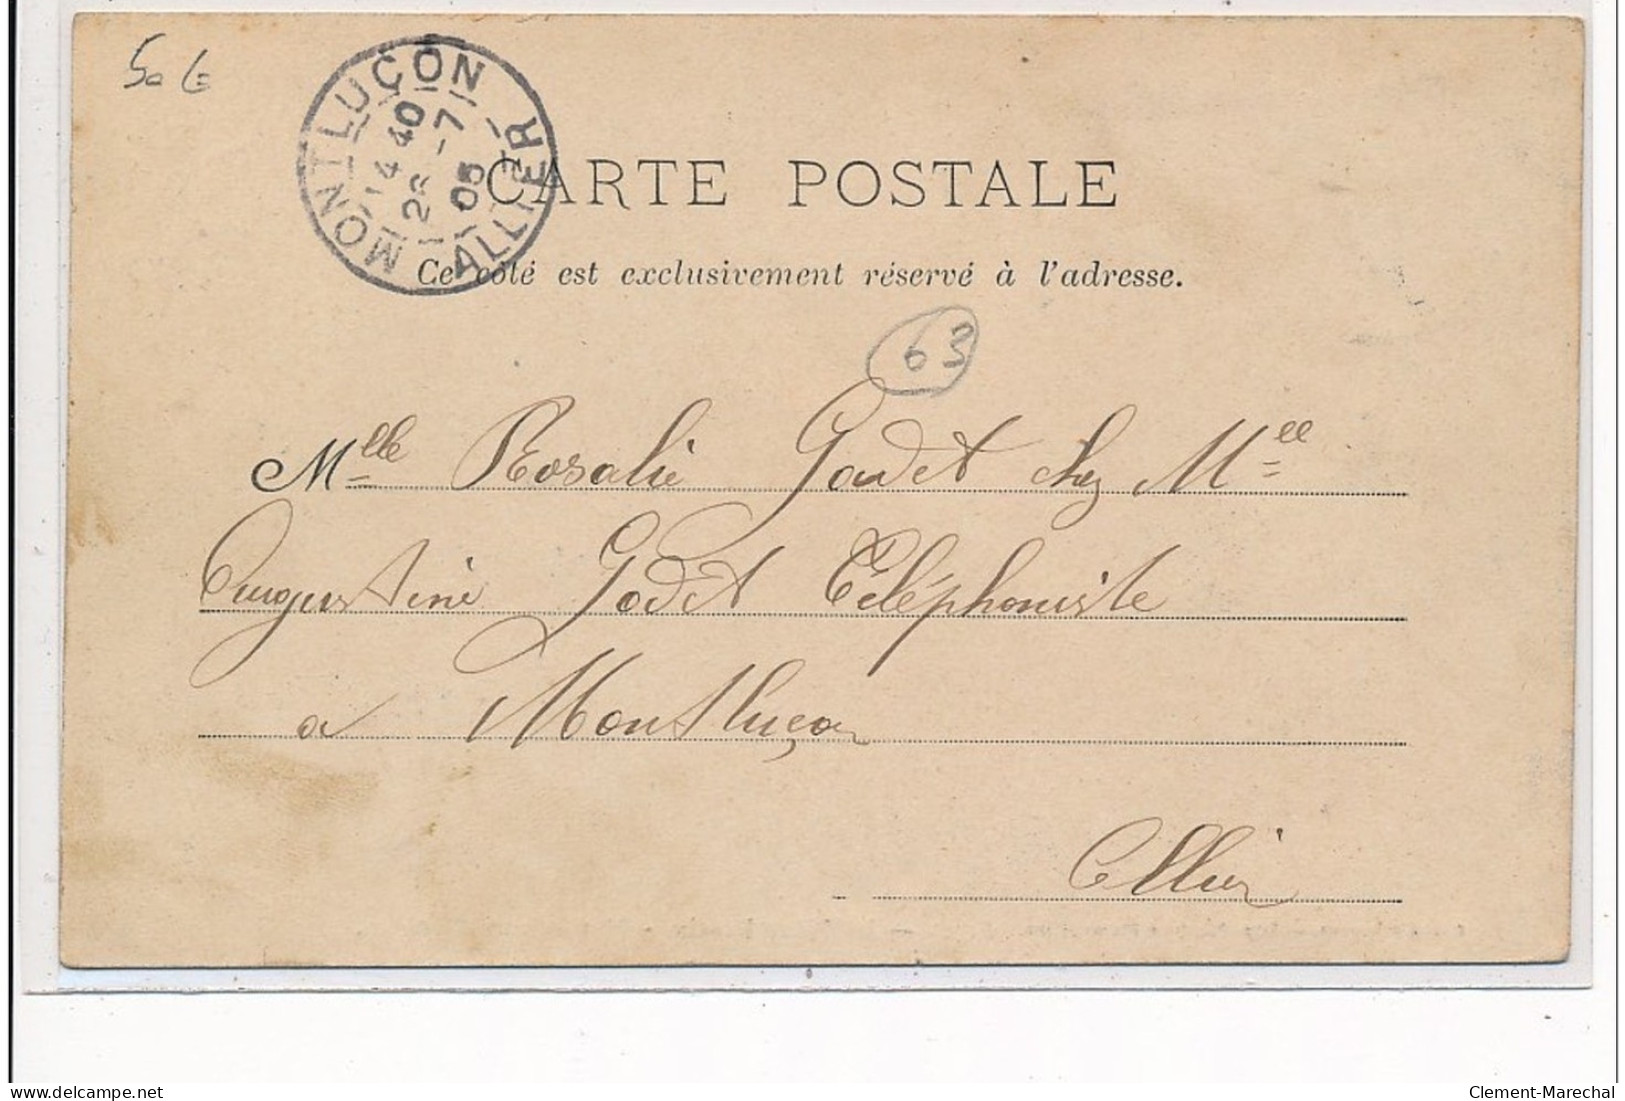 50 €
MONTLUÇON
14 40
28 -7
05
ALLIER
CARTE POSTALE
Ce côté est exclusivement réservé à l'adresse.
63
Mlle Rosalie Godet chez Mlle
Augustine Godet Téléphoniste
à Montluçon
Allier
delcampe.net
Clement-Marechal